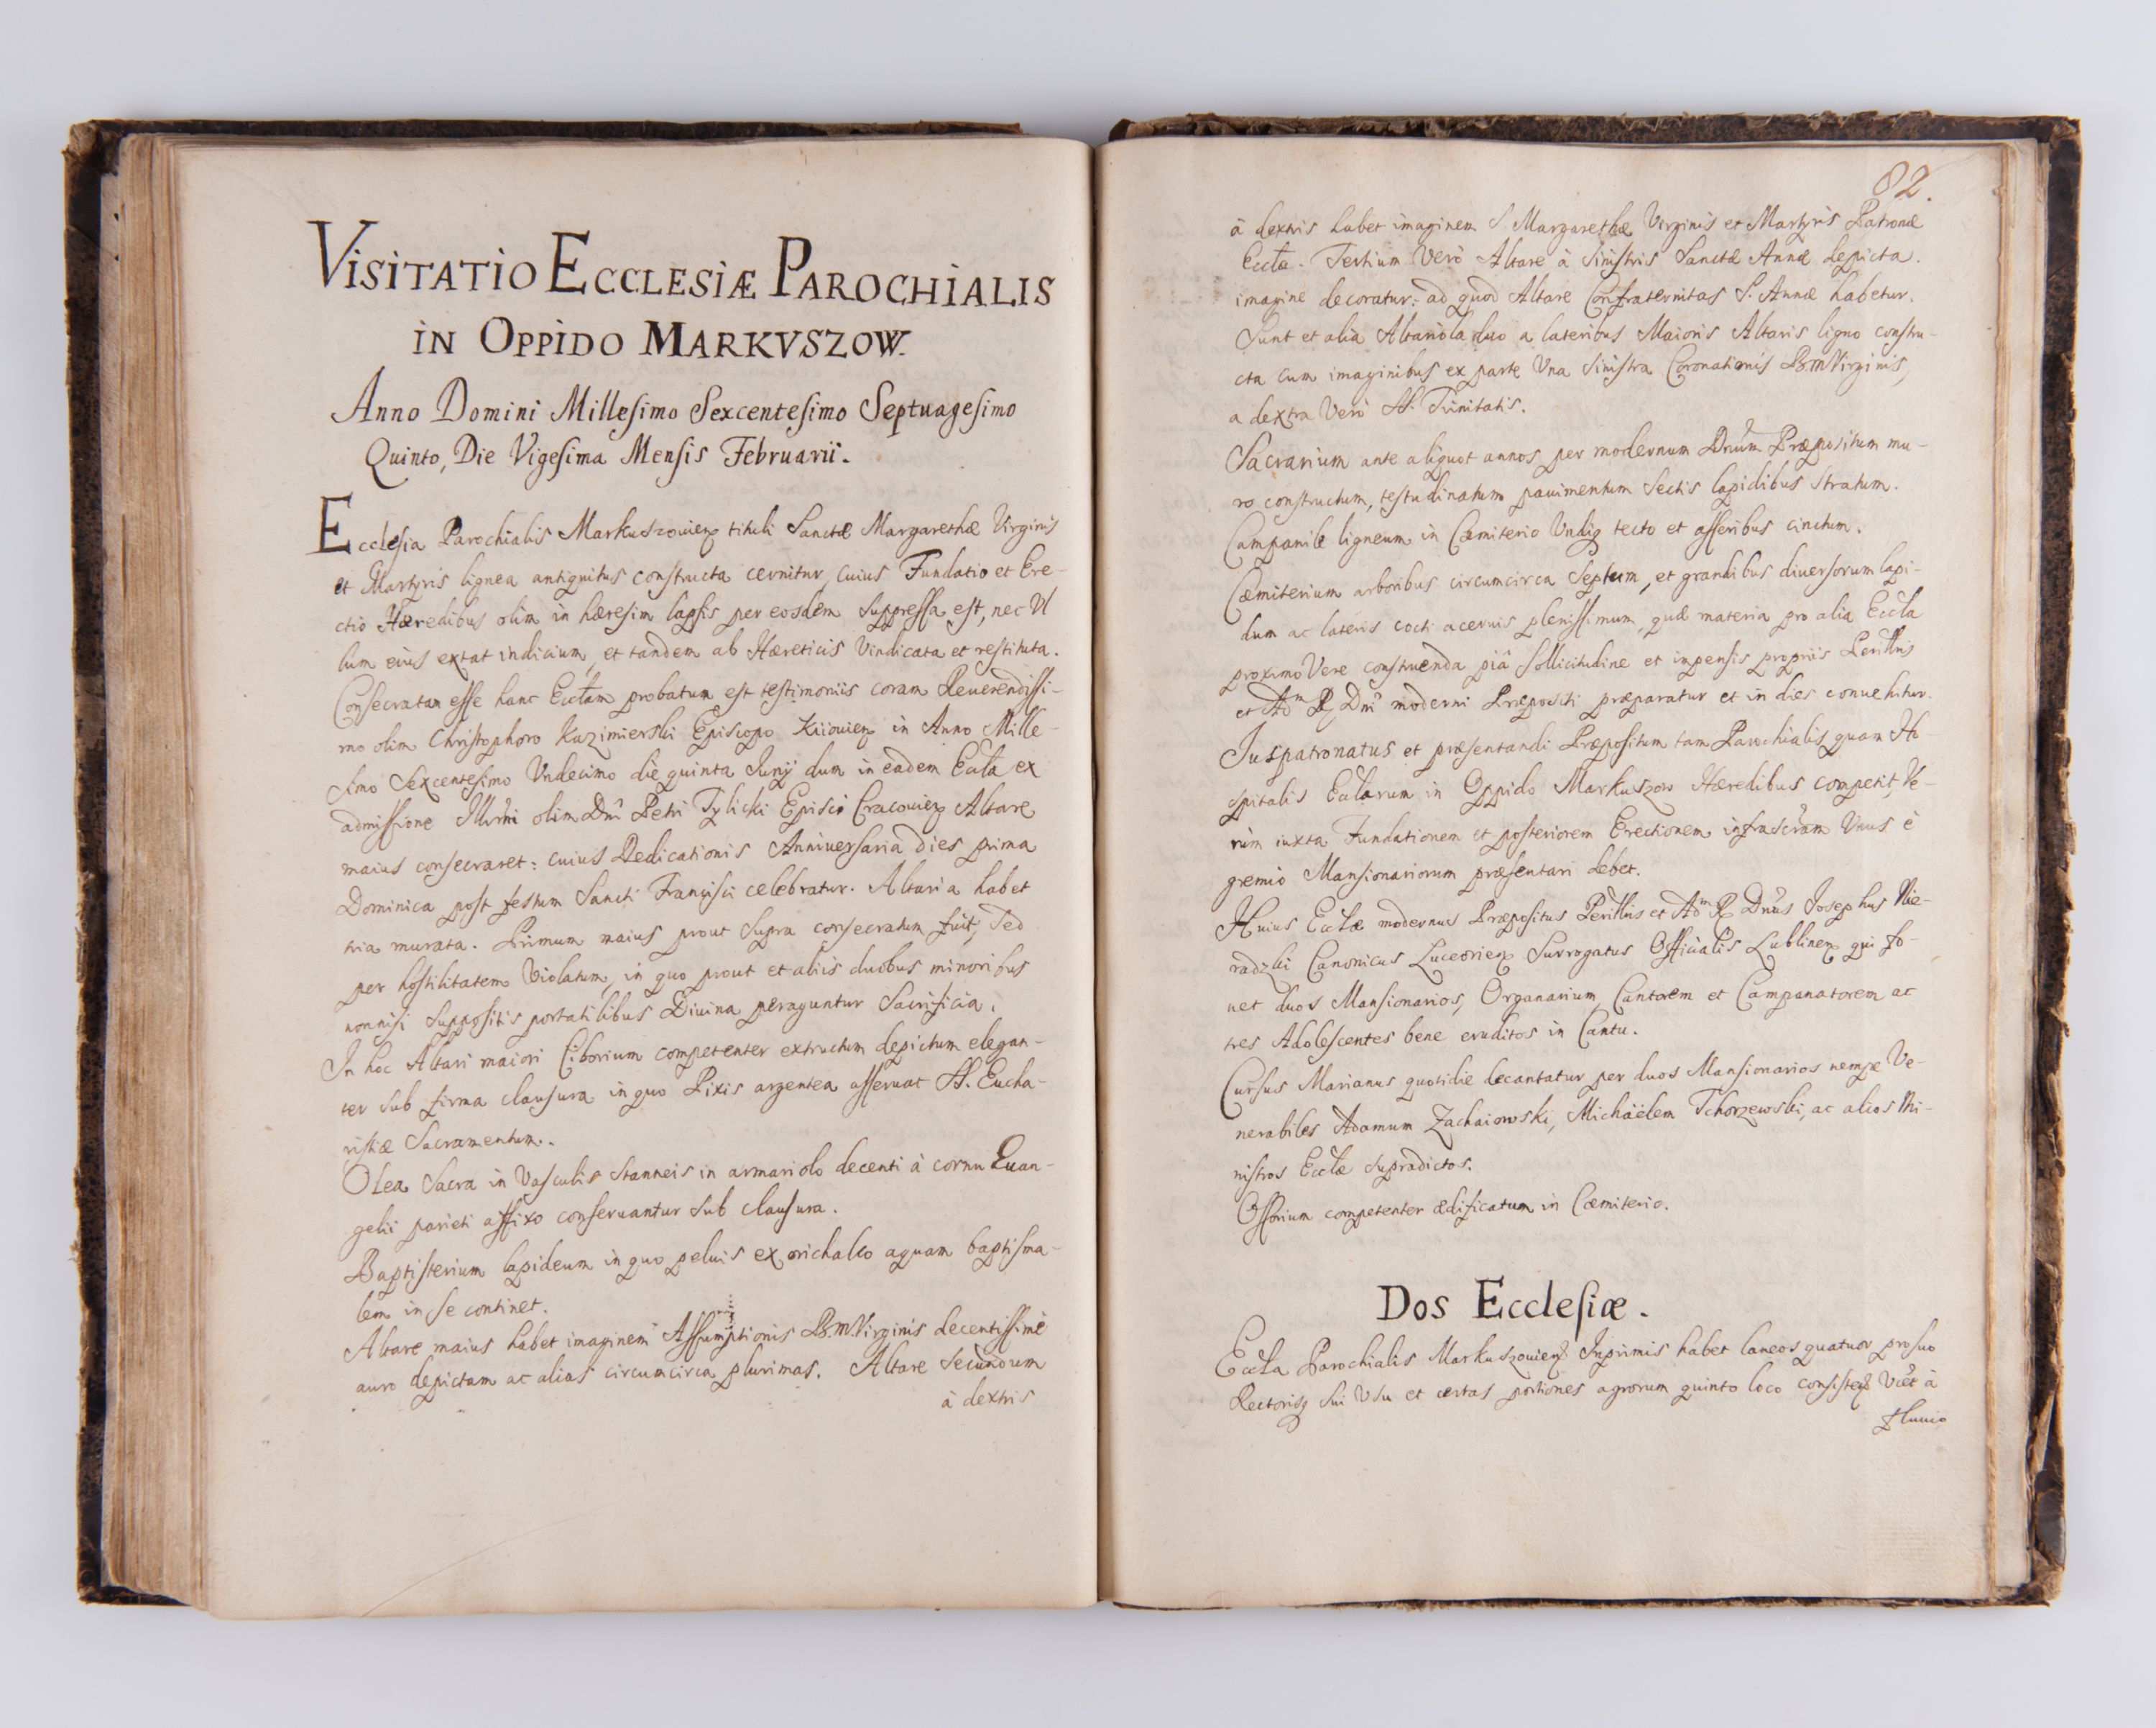 VISITATIO ECCLESIÆ PAROCHIALIS
IN OPPIDO MARKVSZOW.
Anno Domini Millesimo Sexcentesimo Septuagesimo
Quinto, Die Vigesima Mensis Februarii.
Ecclesia Parochialis Markuszowien tituli Sanctæ Margarethæ Virginis
et Martyris lignea antiquitus constructa cernitur, cuius Fundatio et Ere-
ctio Hæredibus olim in hæresim lapsis per eosdem suppressa est, nec Ul
lum eius extat indicium, et tandem ab Hæreticis Vindicata et restituta.
Consecratam esse hanc Ecclam probatum est testimoniis coram Reuerendissi-
mo olim Christophoro Kazimierski Episcopo Kiiouien in Anno Mille-
simo Sexcentesimo Vndecimo die quinta Junij dum in eadem Eccla ex
admissione Illrmi olim Dnī Petri Tylicki Episcī Cracouien Altare
maius consecraret: cuius Dedicationis Anniuersaria dies prima
Dominica post festum Sancti Francisci celebratur. Altaria habet
tria murata. Primum maius prout supra consecratum fuit, sed
per hostilitatem Violatum, in quo prout et aliis duobus minoribus
nonnisi suppositis portatilibus Diuina peraguntur Sacrificia.
In hoc Altari maiori Ciborium competenter extructum depictum elegan-
ter sub firma clausura in quo Pixis argentea asseruat SS. Eucha-
ristiæ Sacramentum.
Olea Sacra in Vasculis Stanneis in armariolo decenti à cornu Euan-
gelii parieti affixo conseruantur sub clausura.
Baptisterium lapideum in quo peluis ex orichalco aquam baptisma-
lem in se continet.
Altare maius habet imaginem Assumptionis B.M. Virginis decentissimè
auro depictam ac alias circumcirca plurimas. Altare secundum
à dextris
82.
à dextris habet imaginem S. Margarethæ Virginis et Martyris Patronæ
Eccłæ. Tertium Verò Altare à Sinistris Sanctæ Annæ depicta
imagine decoratur: ad quod Altare Confraternitas S. Annæ habetur.
Sunt et alia Altariola duo a lateribus Maioris Altaris ligno constru-
cta cum imaginibus ex parte Una Sinistra Coronationis B.M Virginis,
a dextra Verò SS. Trinitatis.
Sacrarium ante aliquot annos per modernum Dnum Præpositum mu-
ro constructum, testudinatum pauimentum Sectis lapidibus Stratum.
Campanile ligneum in Cœmiterio Undiq tecto et asseribus cinctum.
Cœmiterium arboribus circumcirca Septum, et grandibus diuersorum lapi-
dum ac lateris cocti aceruis plenissimum, quæ materia pro alia Eccła
proximo Vere construenda piâ sollicitudine et impensis propriis Perillris
et Adm R Dnī moderni Præpositi præparatur et in dies conuehitur.
Juspatronatus et præsentandi Præpositum tam Parochialis quam Ho-
spitalis Ecclarum in Oppido Markuszow Hæredibus competit, Ve-
rùm iuxta Fundationem et posteriorem Erectionem infrascram Unus è
gremio Mansionariorum præsentari debet.
Huius Eccłæ modernus Præpositus Perillris et Adm R Dnus Josephus Nie-
radzki Canonicus Luceorien Surrogatus Officialis Lublinen qui fo-
uet duos Mansionarios, Organarium, Cantorem et Campanatorem ac
tres Adolescentes bene eruditos in Cantu.
Cursus Marianus quotidie decantatur per duos Mansionarios nempe Ve-
nerabiles Adamum Zachaiowski, Michaëlem Tchorzewski, ac alios Mi-
nistros Eccłæ supradictos.
Ossorium competenter ædificatum in Cœmiterio.
Dos Ecclesiæ.
Eccła Parochialis Markuszouien Inprimis habet laneos quatuor pro suo
Rectorisq sui Usu et certas portiones agrorum quinto loco consisten Vłt à
fluuio